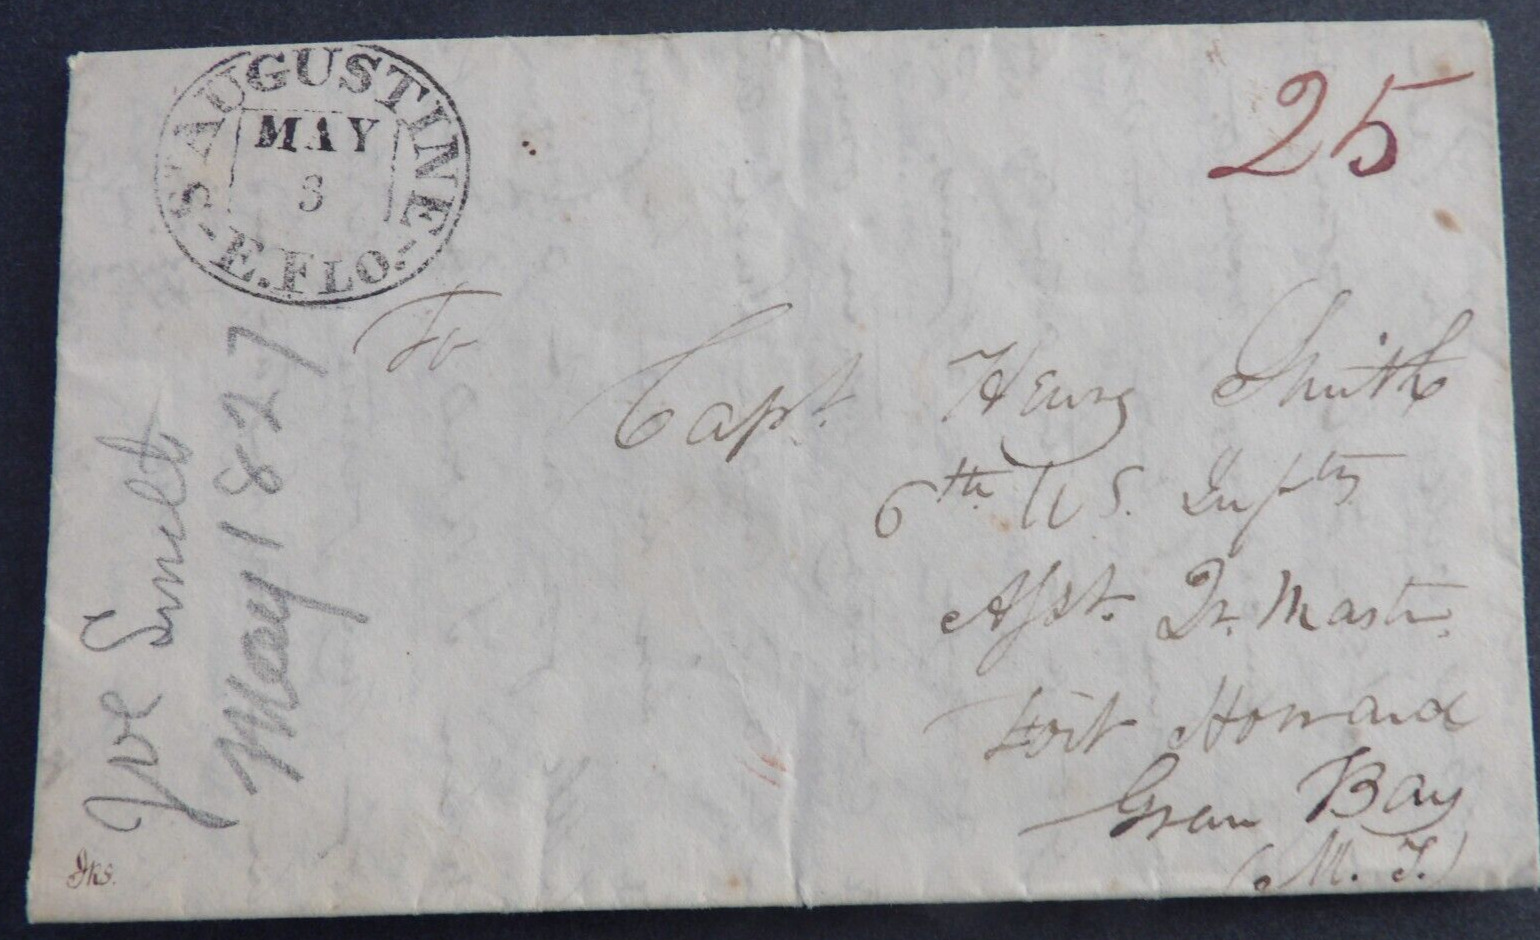 ST AUGUSTINE
MAY
3
-E. FLO.-
25
To
Capt. Henry Smith
6th U S. Infty
Asst. Qr. Mastr.
Fort Howard
Green Bay
(M. T.)
May 1827